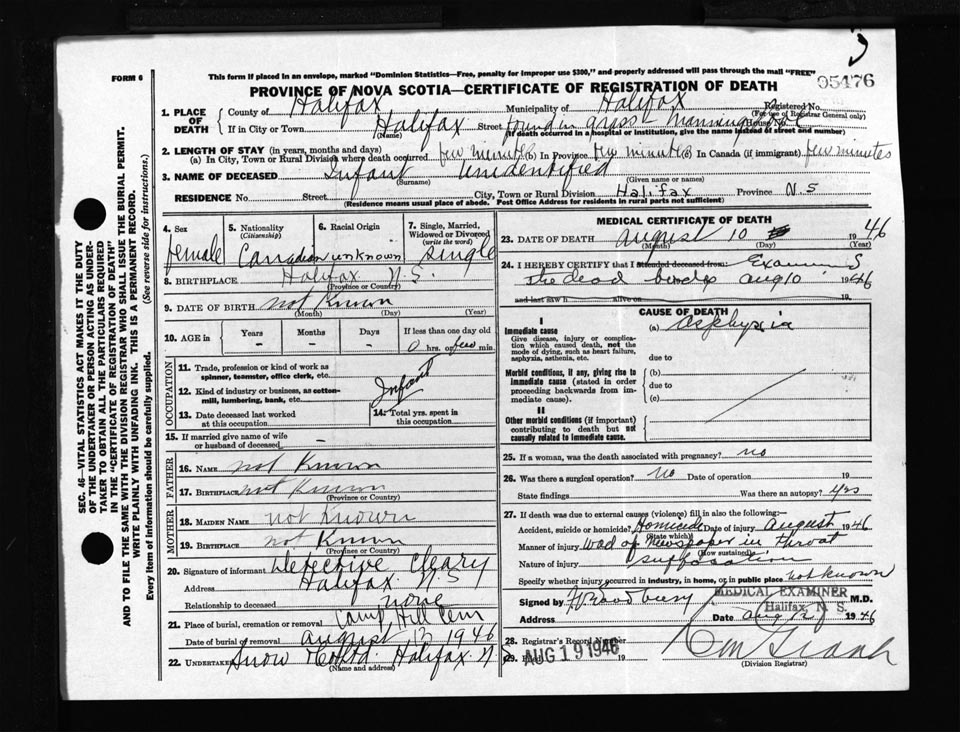 FORM 6
This form if placed in an envelope, marked "Dominion Statistics—Free, penalty for improper use $300," and properly addressed will pass through the mail "FREE"
95476
PROVINCE OF NOVA SCOTIA—CERTIFICATE OF REGISTRATION OF DEATH
SEC. 46—VITAL STATISTICS ACT MAKES IT THE DUTY
OF THE UNDERTAKER OR PERSON ACTING AS UNDER-
TAKER TO OBTAIN ALL THE PARTICULARS REQUIRED
IN THE "CERTIFICATE OF REGISTRATION OF DEATH"
AND TO FILE THE SAME WITH THE DIVISION REGISTRAR WHO SHALL ISSUE THE BURIAL PERMIT.
WRITE PLAINLY WITH UNFADING INK. THIS IS A PERMANENT RECORD.
Every item of information should be carefully supplied. (See reverse side for instructions.)
1. PLACE OF DEATH
County of Halifax Municipality of Halifax Registered No.
(For use of Registrar General only)
If in City or Town Halifax Street found in grass House No.
(Name) (If death occurred in a hospital or institution, give the name instead of street and number)
2. LENGTH OF STAY (in years, months and days)
(a) In City, Town or Rural Division where death occurred few minutes (b) In Province few minutes (c) In Canada (if immigrant) few minutes
3. NAME OF DECEASED Infant Unidentified
(Surname) (Given name or names)
RESIDENCE No. Street City, Town or Rural Division Halifax Province N S
(Residence means usual place of abode. Post Office Address for residents in rural parts not sufficient)
4. Sex female
5. Nationality (Citizenship) Canadian
6. Racial Origin unknown
7. Single, Married, Widowed or Divorced (write the word) Single
8. BIRTHPLACE Halifax N.S.
(Province or Country)
9. DATE OF BIRTH not Known
(Month) (Day) (Year)
10. AGE in Years – Months – Days – If less than one day old 0 hrs. or few min.
OCCUPATION
11. Trade, profession or kind of work as spinner, teamster, office clerk, etc.
12. Kind of industry or business, as cotton-mill, lumbering, bank, etc.
Infant
13. Date deceased last worked at this occupation
14. Total yrs. spent in this occupation
15. If married give name of wife or husband of deceased –
FATHER
16. NAME not Known
17. BIRTHPLACE not Known
(Province or Country)
MOTHER
18. MAIDEN NAME not Known
19. BIRTHPLACE not Known
(Province or Country)
20. Signature of informant Detective Cleary
Address Halifax N.S
Relationship to deceased none
21. Place of burial, cremation or removal Camp Hill Cem
Date of burial or removal august 13 1946
22. UNDERTAKER Snow & Co Ltd. Halifax N S
(Name and address)
MEDICAL CERTIFICATE OF DEATH
23. DATE OF DEATH august 10 1946
(Month) (Day) (Year)
24. I HEREBY CERTIFY that I attended deceased from:
the dead body aug 10 1946
and last saw h alive on 19
CAUSE OF DEATH
I
Immediate cause
Give disease, injury or complication which caused death, not the mode of dying, such as heart failure, asphyxia, asthenia, etc.
(a) asphyxia
due to
Morbid conditions, if any, giving rise to immediate cause (stated in order proceeding backwards from immediate cause).
(b)
due to
(c)
II
Other morbid conditions (if important) contributing to death but not causally related to immediate cause.
25. If a woman, was the death associated with pregnancy? no
26. Was there a surgical operation? no Date of operation 19
State findings Was there an autopsy? yes
27. If death was due to external causes (violence) fill in also the following:—
Accident, suicide or homicide? Homicide Date of injury august 1946
(State which)
Manner of injury wad of newspaper in throat
(How sustained)
Nature of injury suffocation
Specify whether injury occurred in industry, in home, or in public place not known
Signed by M.D.
MEDICAL EXAMINER
Halifax, N. S.
Address Date aug 12 1946
28. Registrar's Record Number
29. Filed AUG 19 1946 19
(Division Registrar)